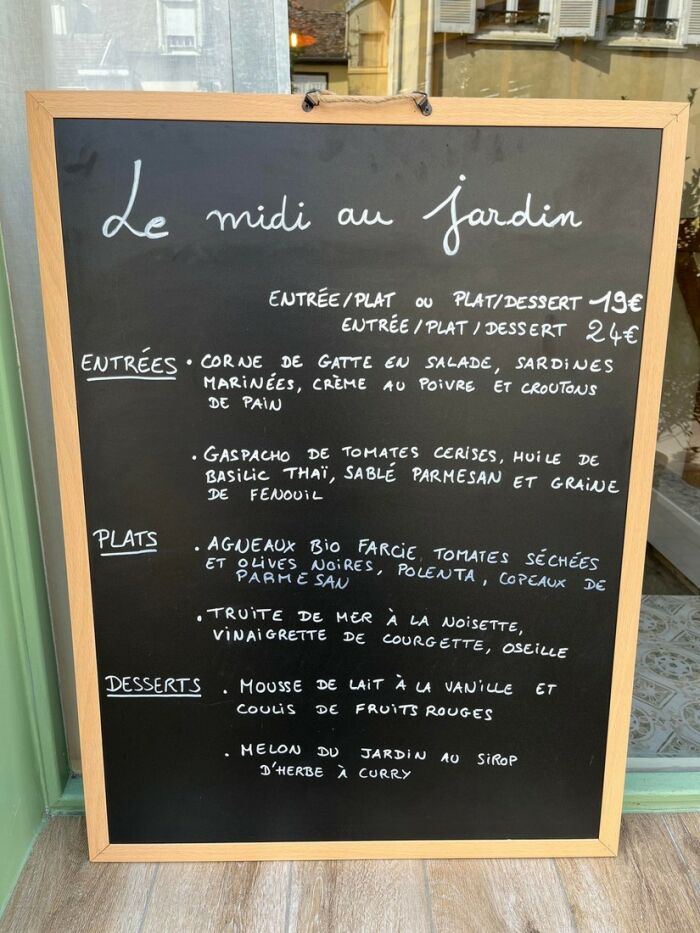 Le midi au jardin
ENTRÉE/PLAT OU PLAT/DESSERT 19€
ENTRÉE/PLAT/DESSERT 24€
ENTRÉES • CORNE DE GATTE EN SALADE, SARDINES
MARINÉES, CRÈME AU POIVRE ET CROUTONS
DE PAIN
• GASPACHO DE TOMATES CERISES, HUILE DE
BASILIC THAÏ, SABLÉ PARMESAN ET GRAINE
DE FENOUIL
PLATS • AGNEAUX BIO FARCIE, TOMATES SÉCHÉES
ET OLIVES NOIRES, POLENTA, COPEAUX DE
PARMESAN
• TRUITE DE MER À LA NOISETTE,
VINAIGRETTE DE COURGETTE, OSEILLE
DESSERTS • MOUSSE DE LAIT À LA VANILLE ET
COULIS DE FRUITS ROUGES
• MELON DU JARDIN AU SIROP
D'HERBE À CURRY